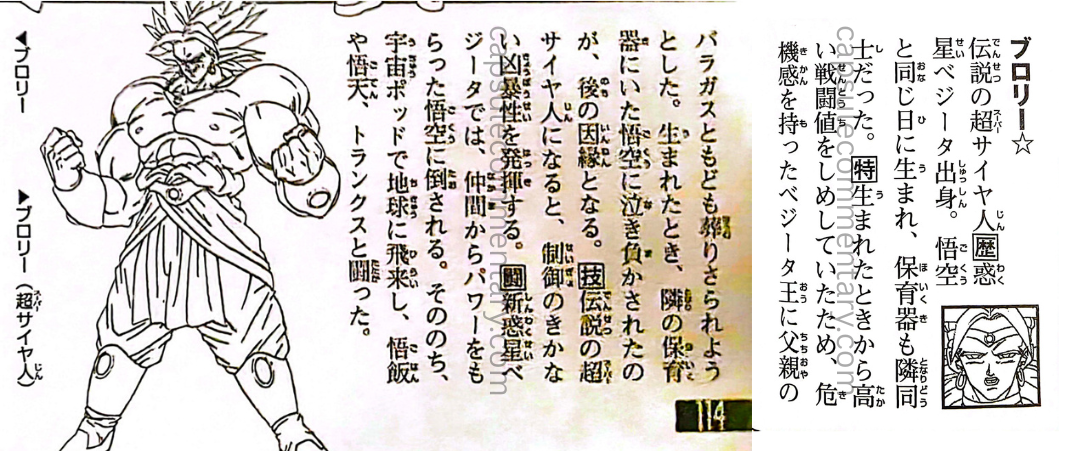 ブロリー☆
伝説の超サイヤ人歴惑
星ベジータ出身。悟空
と同じ日に生まれ、保育器も隣同
士だった。特生まれたときから高
い戦闘値をしめしていたため、危
機感を持ったベジータ王に父親の
バラガスともども葬りさられよう
とした。生まれたとき、隣の保育
器にいた悟空に泣き負かされたの
が、後の因縁となる。技伝説の超
サイヤ人になると、制御のきかな
い凶暴性を発揮する。闘新惑星ベ
ジータでは、仲間からパワーをも
らった悟空に倒される。そののち、
宇宙ポッドで地球に飛来し、悟飯
や悟天、トランクスと闘った。
◀ブロリー
▶ブロリー（超サイヤ人）
114
capsulecommentary.com
capsulecommentary.com